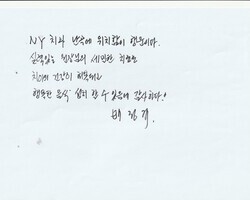 NY 치과 반석에 위치함이 행운이다.
실력있는 원장님의 세밀한 치료로
치아의 건강이 회복되고
행복한 음식 섭취 할 수 있음에 감사하다!